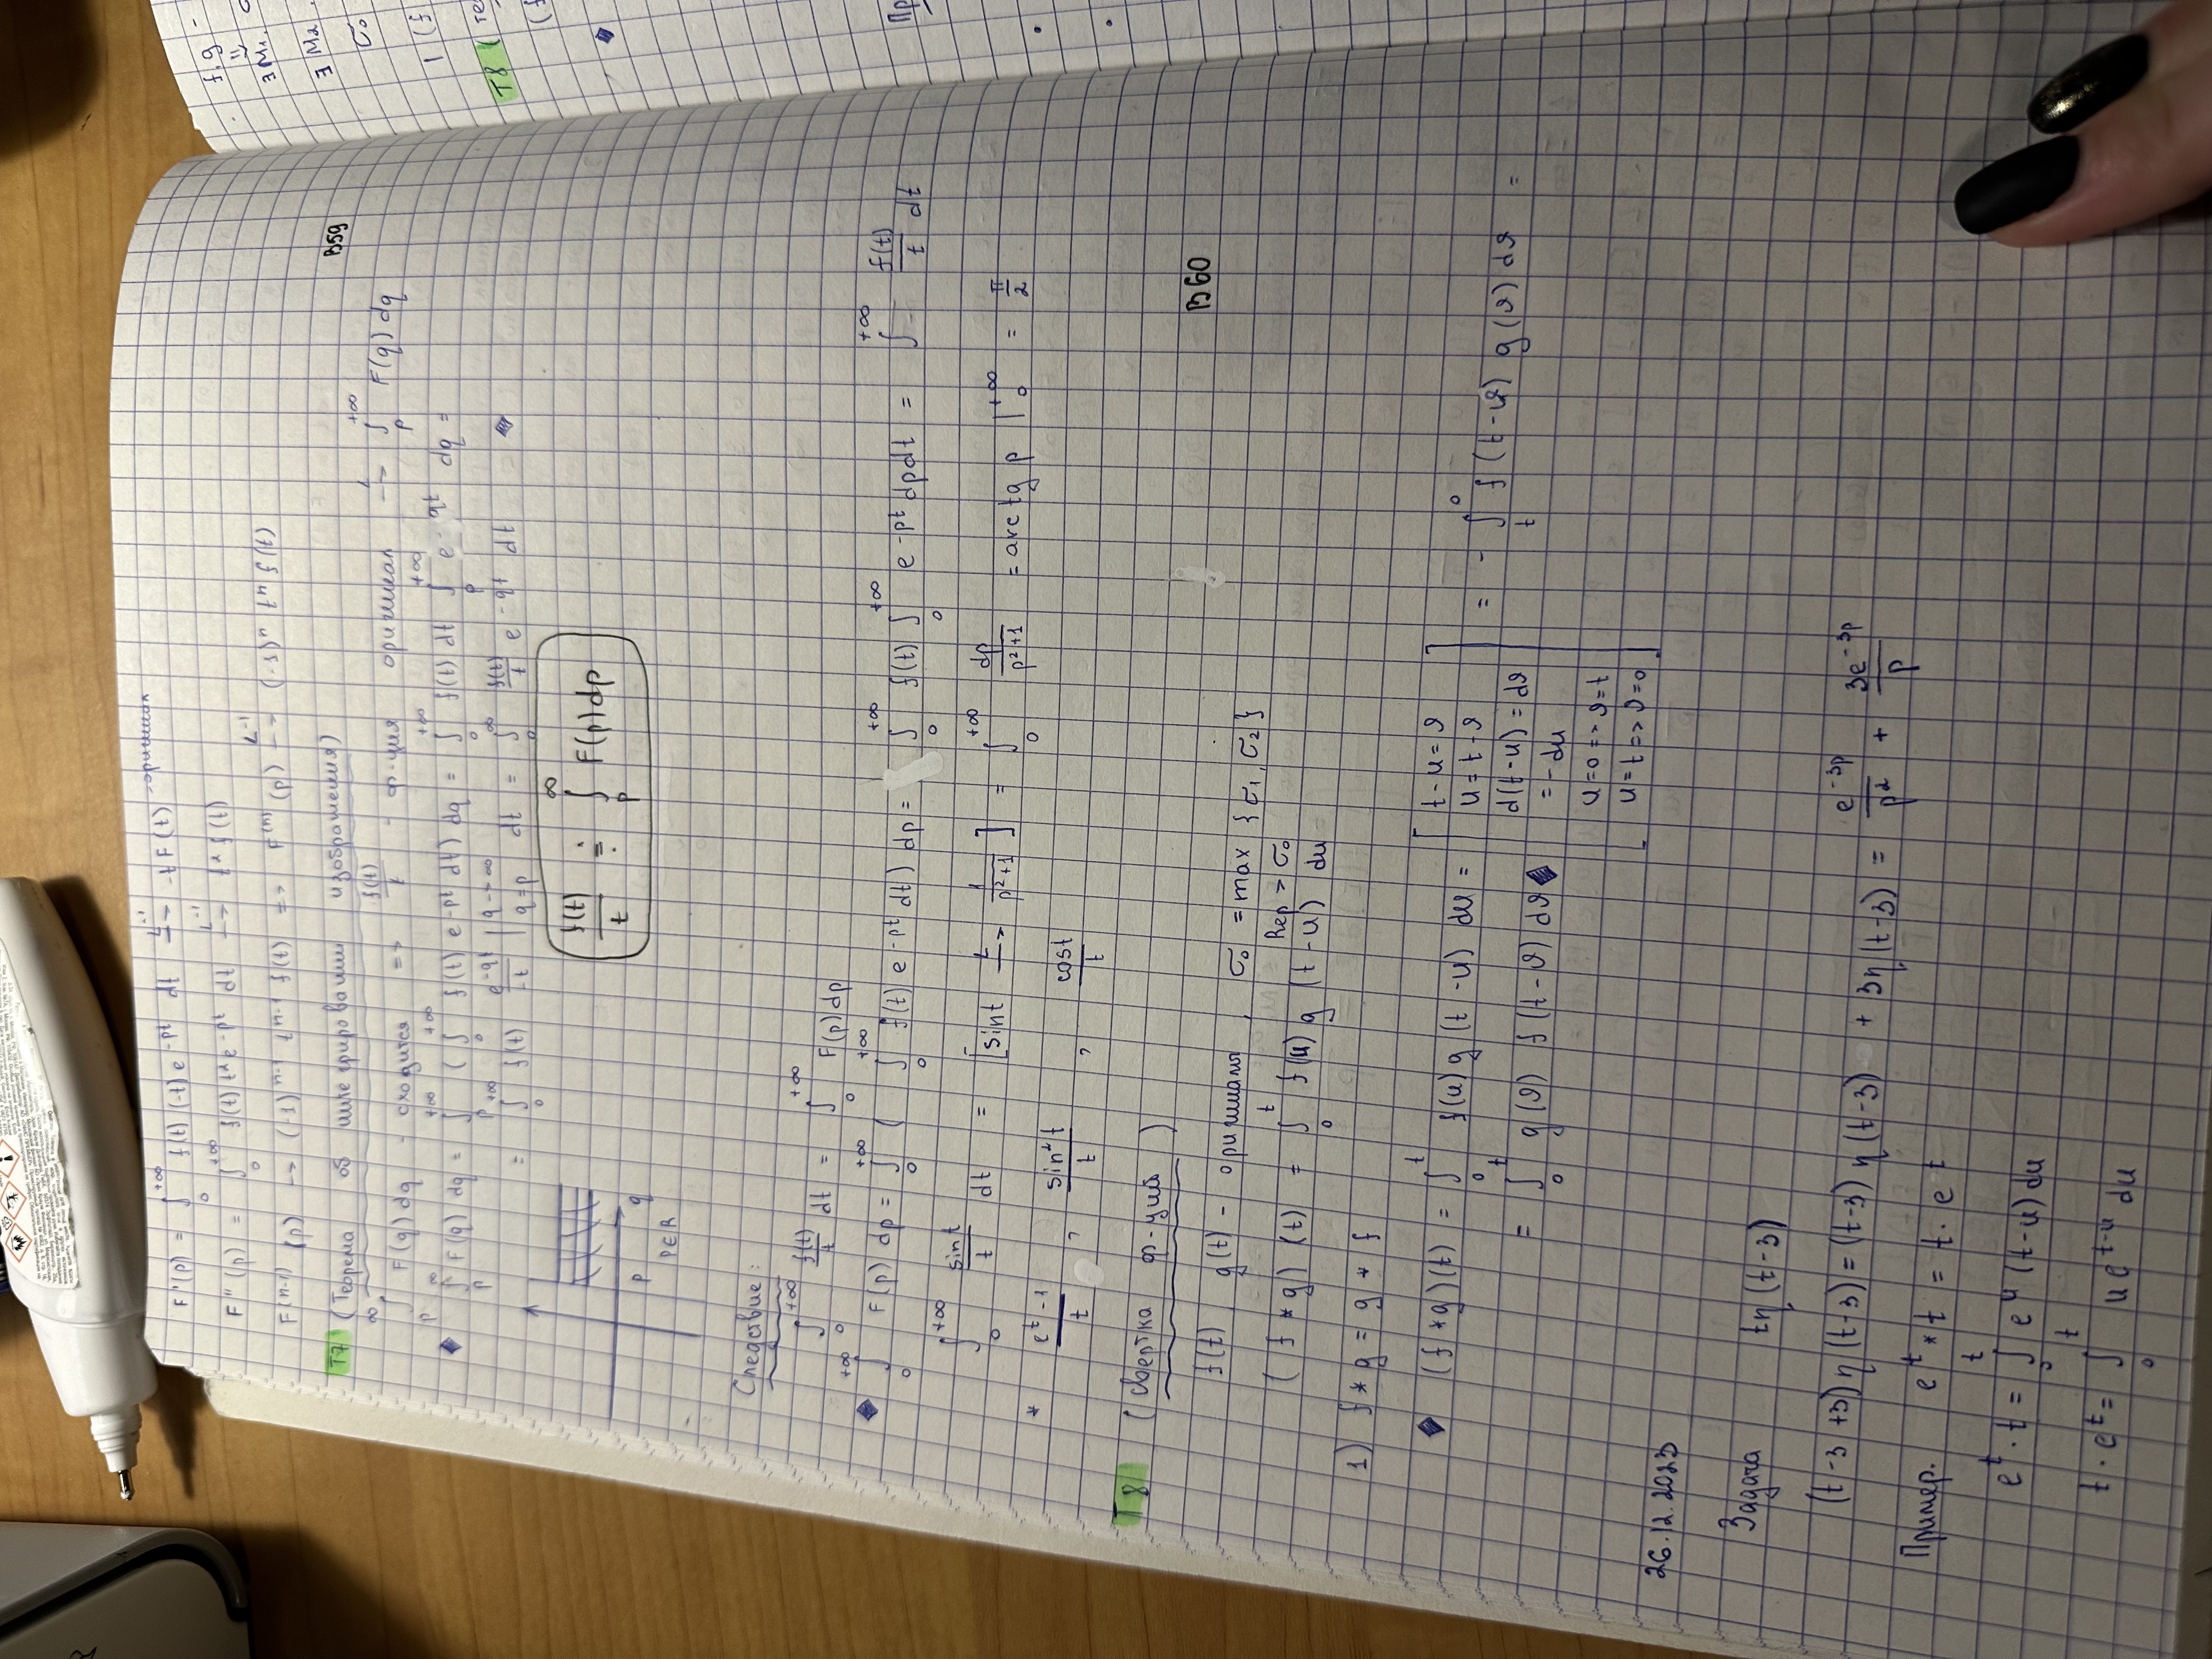 F'(p) = ∫₀^{+∞} f(t)(-t)e^{-pt} dt →^{L^{-1}} -t f(t) -оригинал
F''(p) = ∫₀^{+∞} f(t) t² e^{-pt} dt →^{L^{-1}} t² f(t)
F^{(n-1)}(p) → (-1)^{n-1} t^{n-1} f(t) => F^{(n)}(p) →^{L^{-1}} (-1)^n t^n f(t)
T7 (Теорема об интегрировании изображения)
B59
∫_p^∞ F(q)dq - сходится => f(t)/t - ф-ция оригинал →^L ∫_p^{+∞} F(q)dq
◆ ∫_p^∞ F(q)dq = ∫_p^{+∞} (∫₀^{+∞} f(t)e^{-pt}dt)dq = ∫₀^{+∞} f(t)dt ∫_p^{+∞} e^{-qt} dq =
= ∫₀^{+∞} f(t) e^{-qt}/-t |_{q=p}^{q→∞} dt = ∫₀^∞ f(t)/t e^{-qt} dt ◆
f(t)/t ≑ ∫_p^∞ F(p)dp
p q
p∈R
Следствие:
∫₀^{+∞} f(t)/t dt = ∫₀^{+∞} F(p)dp
◆ ∫₀^{+∞} F(p)dp = ∫₀^{+∞} (∫₀^{+∞} f(t)e^{-pt}dt)dp = ∫₀^{+∞} f(t) ∫₀^{+∞} e^{-pt}dpdt = ∫^{+∞} f(t)/t dt
∫₀^{+∞} sint/t dt = [sint →^L 1/(p²+1)] = ∫₀^{+∞} dp/(p²+1) = arctg p |₀^{+∞} = π/2
* (e^t-1)/t , sin²t/t , cost/t
T8 (свертка ф-ций)
B60
f(t) g(t) - оригиналы, σ₀ = max {σ₁, σ₂}
Rep > σ₀
(f*g)(t) = ∫₀^t f(u)g(t-u)du
1) f*g = g*f
◆ (f*g)(t) = ∫₀^t f(u)g(t-u)du = [ t-u=ϑ
u=t-ϑ
d(t-u)=dϑ
=-du
u=0=>ϑ=t
u=t=>ϑ=0 ] = -∫_t^0 f(t-ϑ)g(ϑ)dϑ =
= ∫₀^t g(ϑ)f(t-ϑ)dϑ ◆
26.12.2023
Задача tη(t-3)
(t-3+3)η(t-3) = (t-3)η(t-3) + 3η(t-3) = e^{-3p}/p² + 3e^{-3p}/p
Пример. e^t * t = t · e^t
e^t · t = ∫₀^t e^u (t-u)du
t · e^t = ∫₀^t ue^{t-u}du
f, g -
∃ M₁
∃ M₂
σ₀
T8 (те
Пр